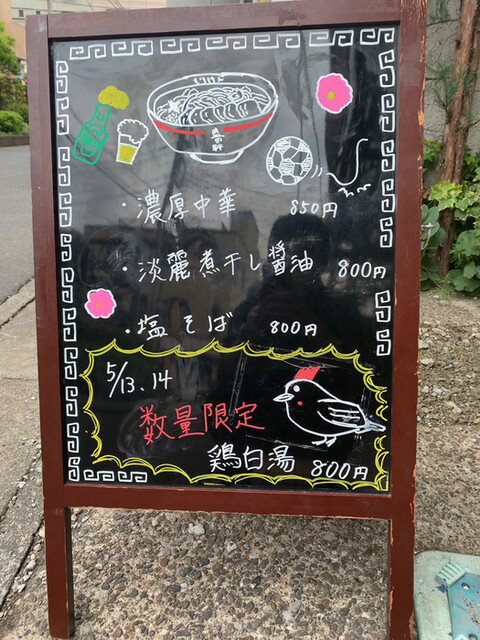 ・濃厚中華 850円
・淡麗煮干し醤油 800円
・塩そば 800円
5/13、14
数量限定
鶏白湯 800円